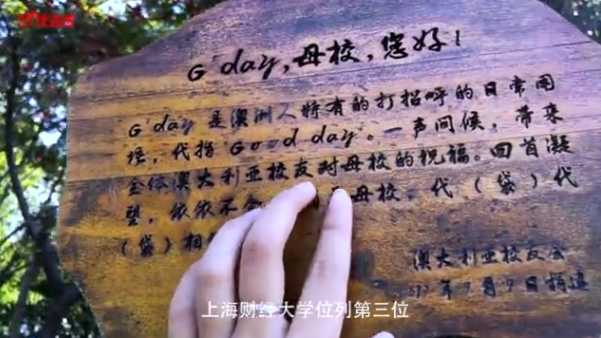 G'day,母校,您好!
G'day 是澳洲人特有的打招呼的日常用
语,代指"Good day"。一声问候,带来
全体澳大利亚校友对母校的祝福。回首凝
望,依依不 母校,代(袋)代
(袋)相
澳大利亚校友会
年 月9日捐造
上海财经大学位列第三位